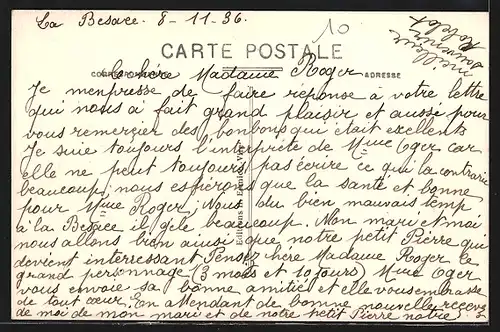 La Besace. 8-11-36.
10
CARTE POSTALE
CORRESPONDANCE
ADRESSE
chère Madame Roger
Je menpresse de faire réponse à votre lettre
qui nous a fait grand plaisir et aussé pour
vous remercier des bonbons qui était excellents
Je suie toujours l'interprète de Mme Oger car
elle ne peut toujours pas écrire ce qui la contrarie
beaucoup, nous espérons que la santé et bonne
pour Mme Roger, Nous du bien mauvais temp
à la Besace il gèle beaucoup. Mon mari et moi
nous allons bien ainsi que notre petit Pierre qui
devient interressant Pensez chère Madame Roger le
grand personnage (3 mois et 10 jours) Mme Oger
vous envoie sa bonne amitié et elle vous embrasse
de tout cœur. En attendant de bonne nouvelle recevez
de moi de mon mari et de notre petit Pierre notre